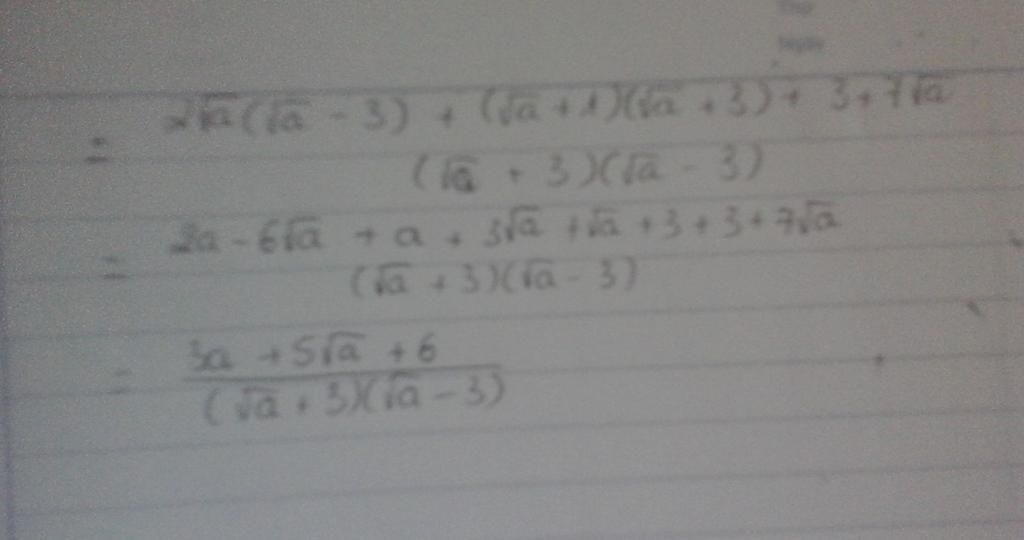 = 2√a(√a - 3) + (√a + 1)(√a + 3) + 3 + 7√a
(√a + 3)(√a - 3)
= 2a - 6√a + a + 3√a + √a + 3 + 3 + 7√a
(√a + 3)(√a - 3)
= 3a + 5√a + 6
(√a + 3)(√a - 3)